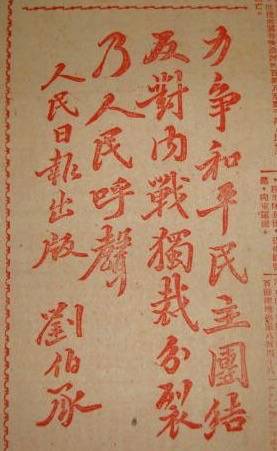 力争和平民主團结
反對内戰獨裁分裂
乃人民呼聲
人民日報出版
劉伯承